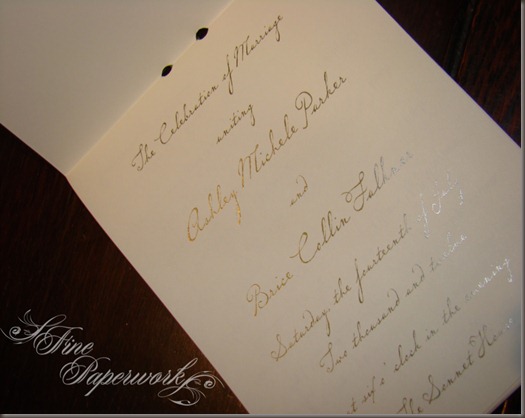 The Celebration of Marriage
uniting
Ashley Michele Parker
and
Brice Collin Falkner
Saturday, the fourteenth of July
Two thousand and twelve
at six o'clock in the evening
The Sonnet House
A Fine
Paperworks